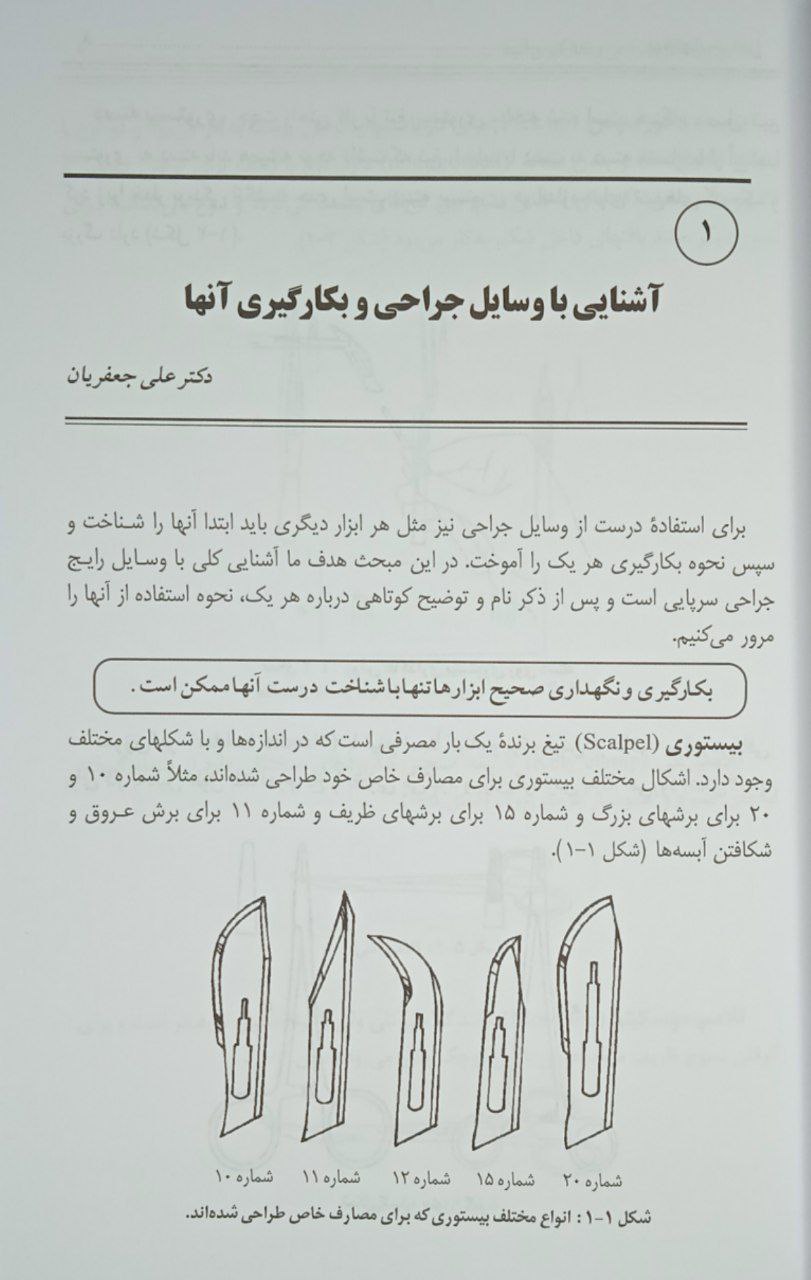 ۱
آشنایی با وسایل جراحی و بکارگیری آنها
دکتر علی جعفریان
برای استفادهٔ درست از وسایل جراحی نیز مثل هر ابزار دیگری باید ابتدا آنها را شـناخت و
سپس نحوه بکارگیری هر یک را آموخت. در این مبحث هدف ما آشنایی کلی با وسـایل رایـج
جراحی سرپایی است و پس از ذکر نام و توضیح کوتاهی درباره هر یک، نحوه استفاده از آنها را
مرور می‌کنیم.
بکارگیری و نگهداری صحیح ابزارها تنها با شناخت درست آنها ممکن است.
بیستوری (Scalpel) تیغ برندهٔ یک‌بار مصرفی است که در اندازه‌ها و با شکلهای مختلف
وجود دارد. اشکال مختلف بیستوری برای مصارف خاص خود طراحی شده‌اند، مثلاً شماره ۱۰ و
۲۰ برای برشهای بزرگ و شماره ۱۵ برای برشهای ظریف و شماره ۱۱ برای برش عـروق و
شکافتن آبسه‌ها (شکل ۱-۱).
شماره ۲۰ شماره ۱۵ شماره ۱۲ شماره ۱۱ شماره ۱۰
شکل ۱-۱: انواع مختلف بیستوری که برای مصارف خاص طراحی شده‌اند.